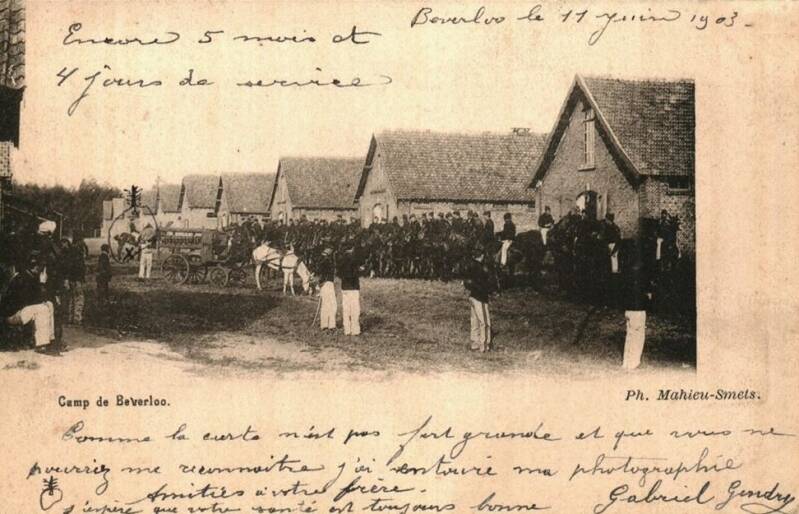 Beverloo le 11 Juin 1903
Encore 5 mois et
4 jours de service
Camp de Beverloo.
Ph. Mahieu-Smets.
Comme la carte n'est pas fort grande et que vous ne
pourriez me reconnaître j'ai entouré ma photographie
Amitiés à votre frère.
j'espère que votre santé est toujours bonne
Gabriel Gendry